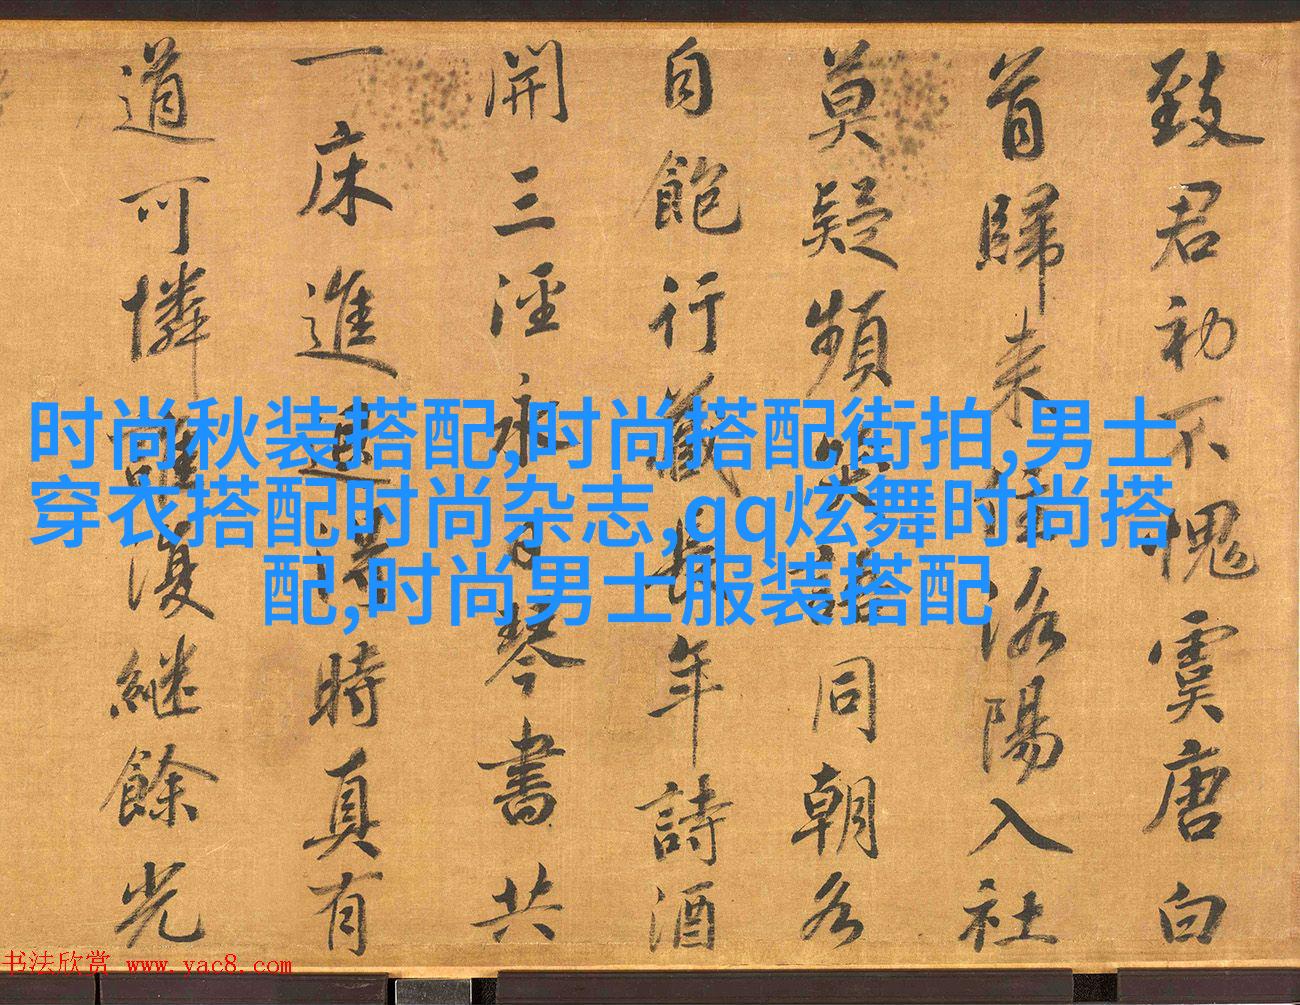 致君初不愧虞唐白
首歸来洛陽入社
莫疑頻笑語同朝各
自飽行藏長年詩酒
開三涇永日琴書共
一床進退得時真有
道可憐誰復繼餘光
时尚秋装搭配,时尚搭配街拍,男士
穿衣搭配时尚杂志,qq炫舞时尚搭
配,时尚男士服装搭配
书法欣赏 www.yac8.com